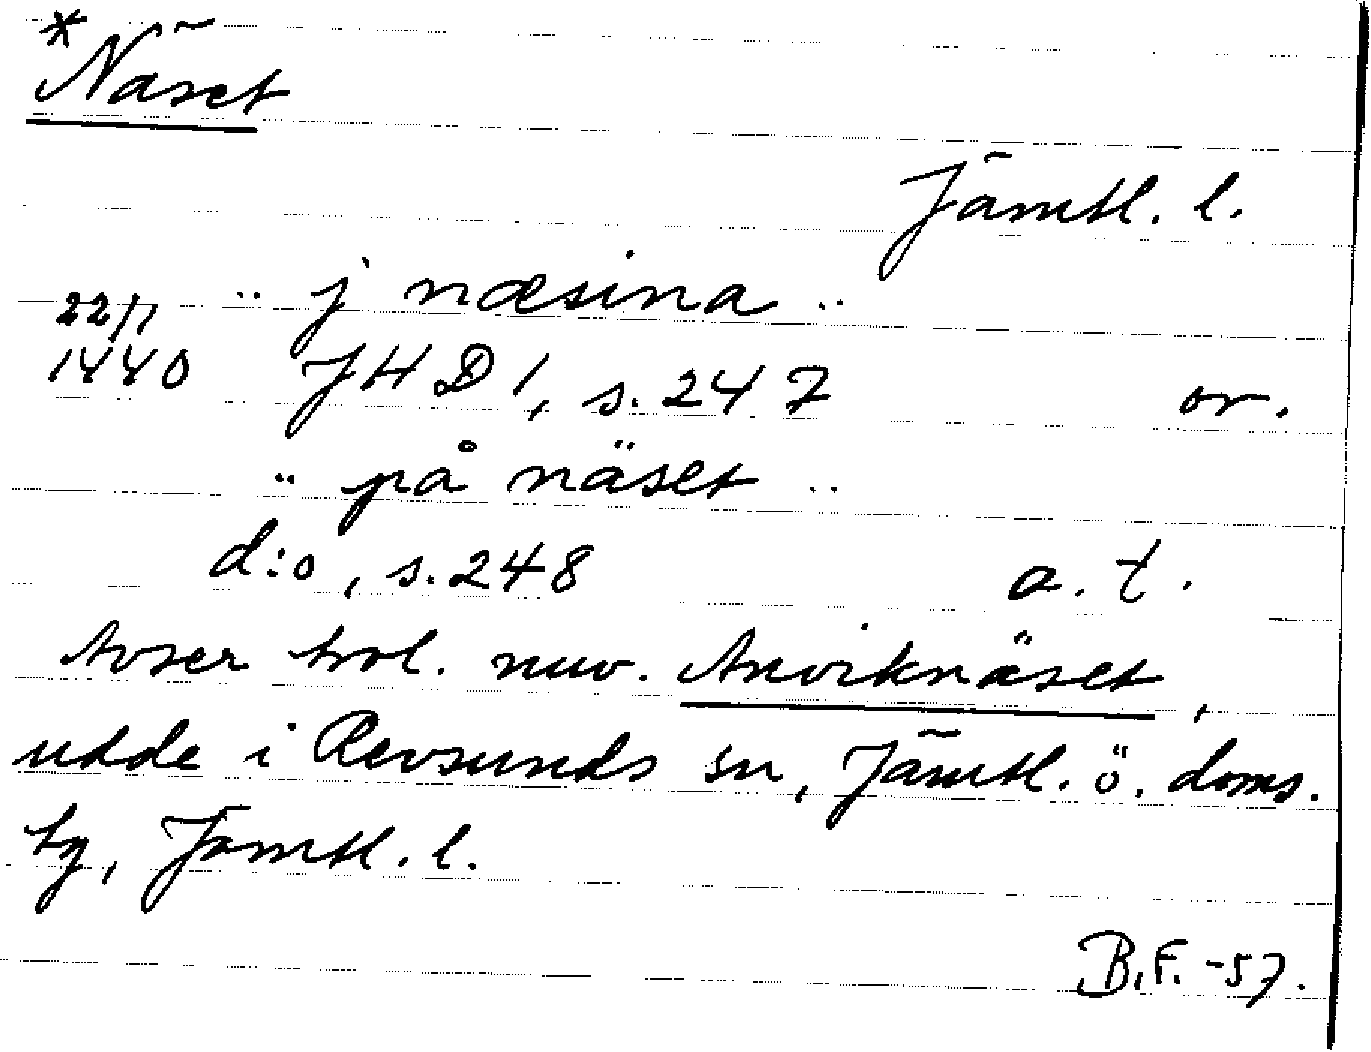 *Näset
Jämtl. l.
22/1 .. j næsina ..
1440 JHD 1, s. 247 or.
.. på näset ..
d:o, s. 248 a. t.
Avser trol. nuv. Anviknäset,
udde i Revsunds sn, Jämtl. ö. doms.
tg, Jämtl. l.
B.F. -57.